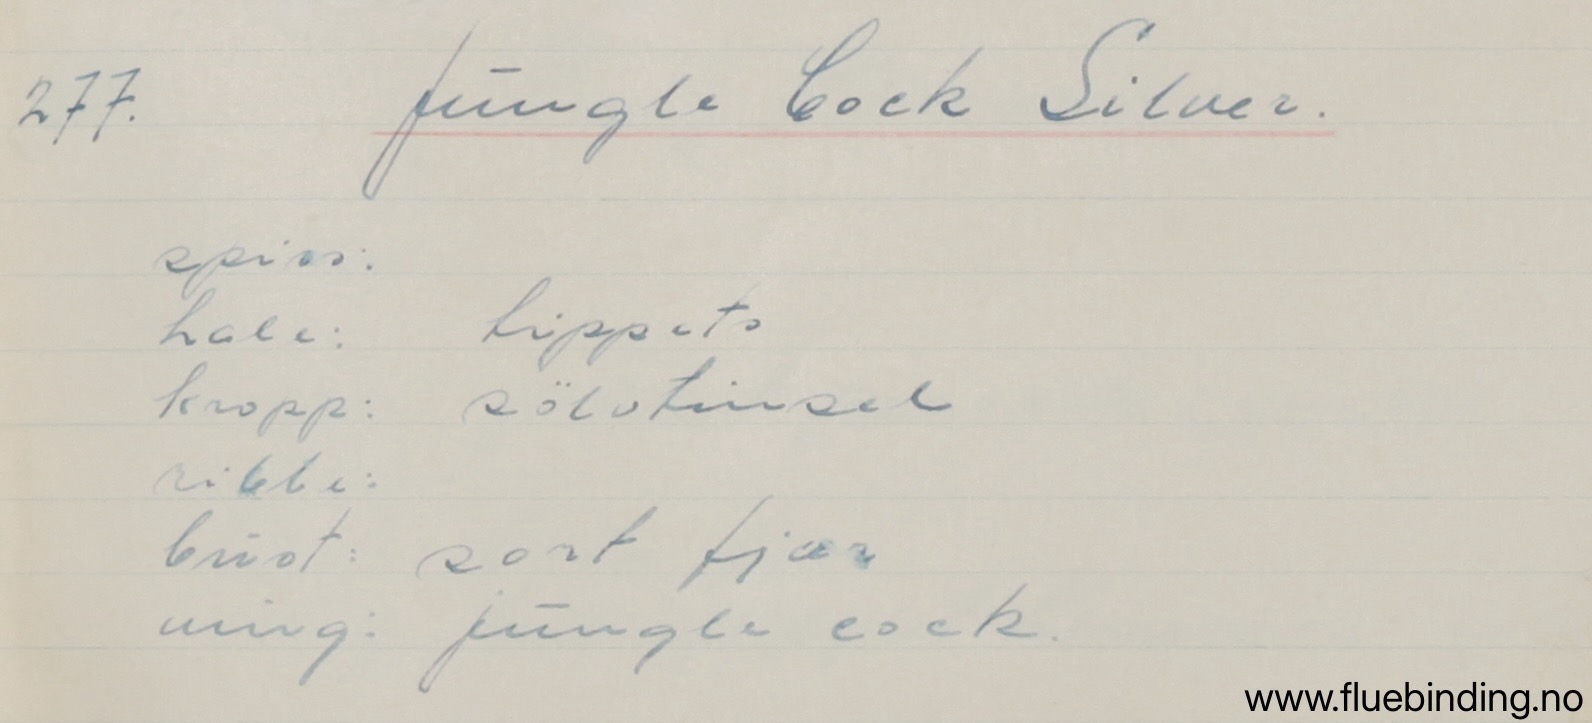 277. Jungle Cock Silver.
spiss:
hale: tippets
kropp: sölvtinsel
ribbe:
brüst: sort fjær
ving: jungle cock.
www.fluebinding.no